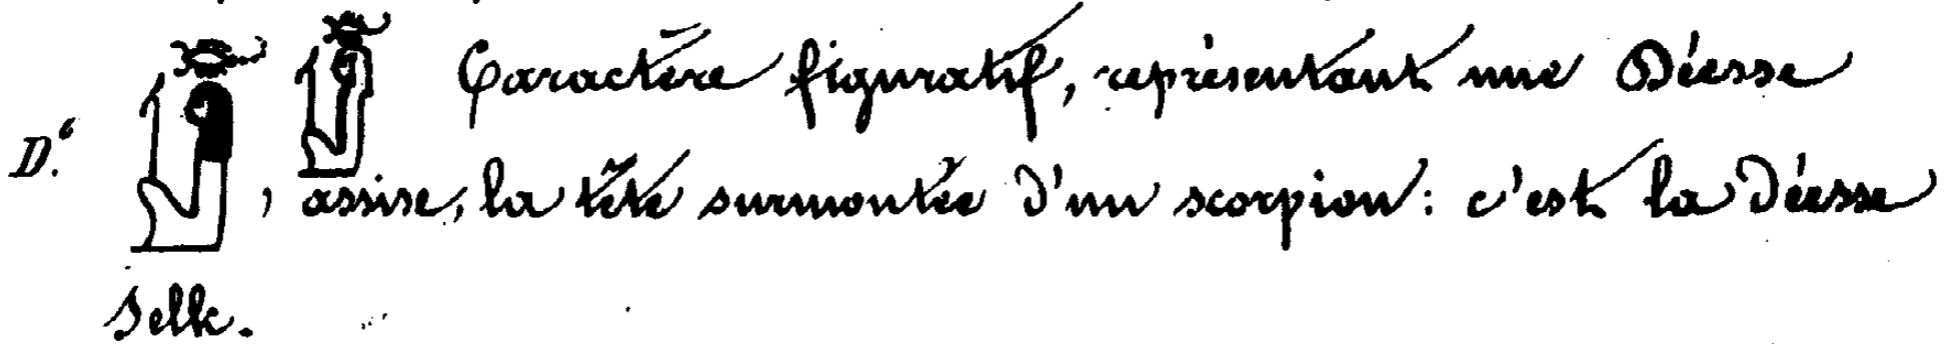 Caractère figuratif, représentant une Déesse
D.°, assise, la tête surmontée d'un scorpion : c'est la Déesse
Selk.